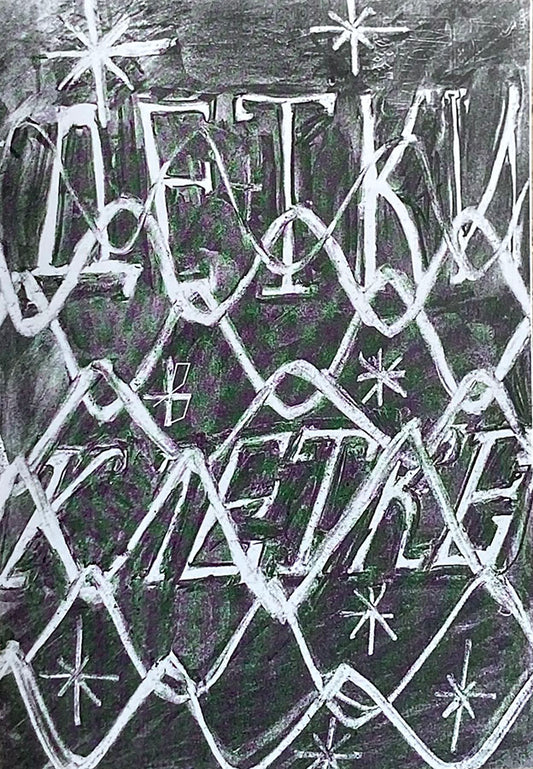 ДЕТКИ
В
КЛЕТКЕ